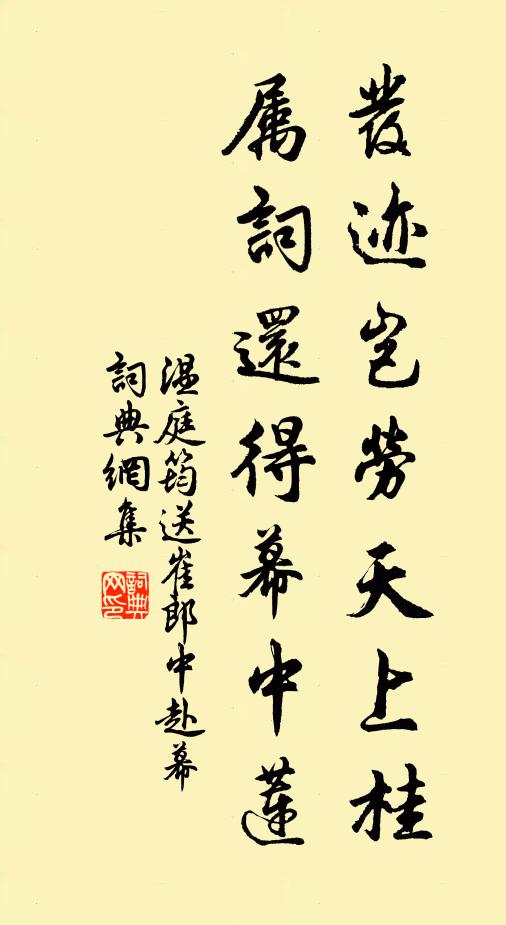 發迹岂勞天上桂
属詞還得幕中蓮
温庭筠送崔郎中赴幕
詞典網集
詞典網印